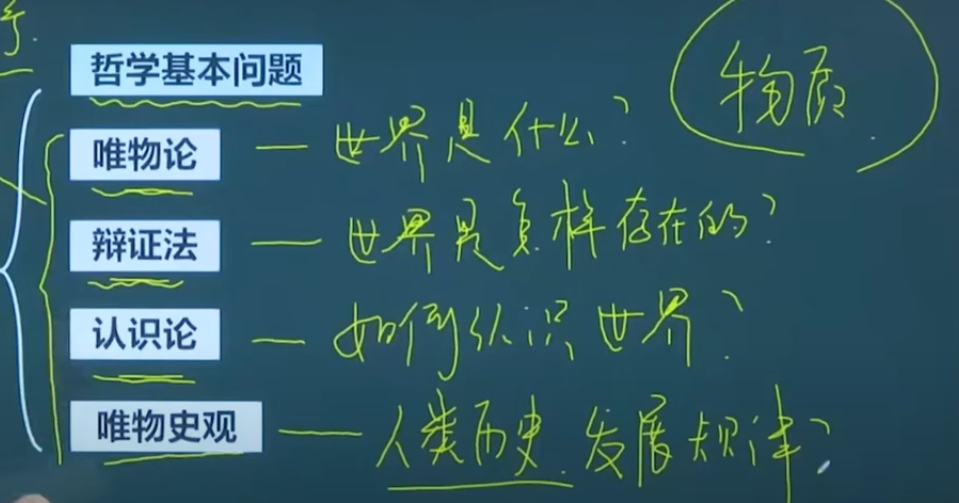 哲学基本问题
物质
唯物论 — 世界是什么?
辩证法 — 世界是怎样存在的?
认识论 — 如何认识世界?
唯物史观 — 人类历史发展规律?